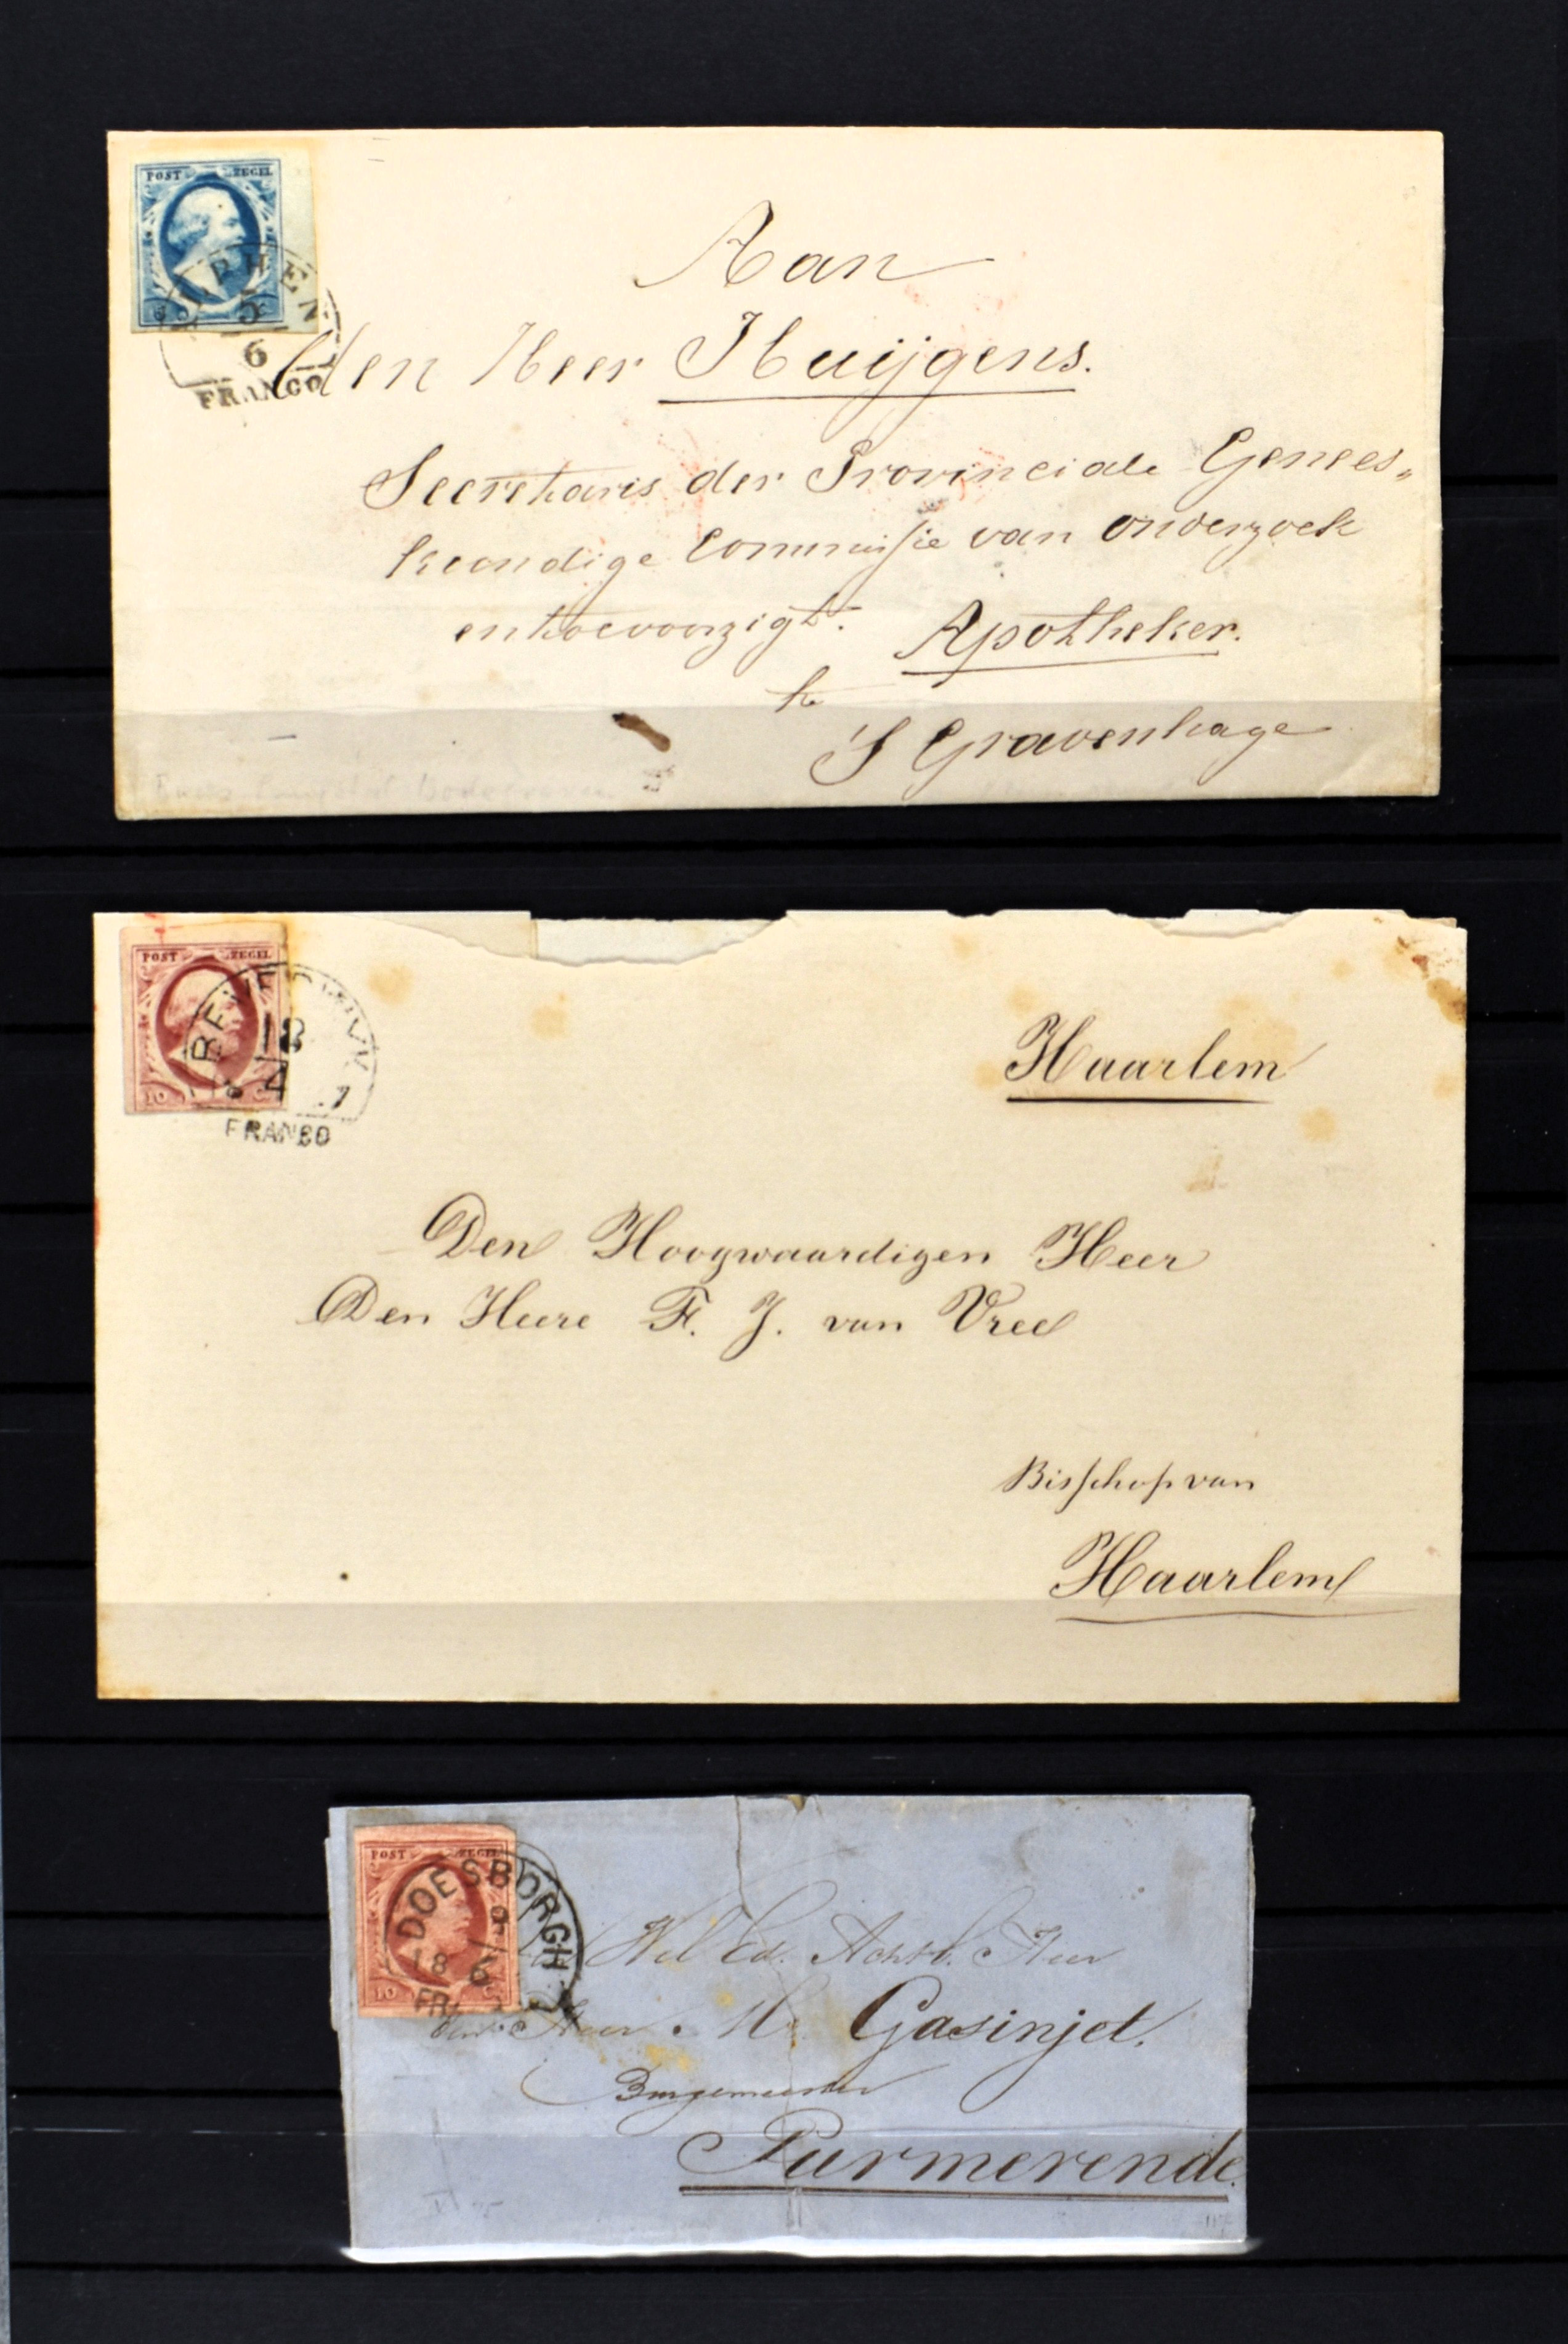 POST ZEGEL
5
6
FRANCO
Aan
den Heer Huijgens.
Secretaris der Provinciale Genees„
kundige Commissie van onderzoek
en toevoorzigt. Apotheker.
te
'S Gravenhage
POST ZEGEL
18
4
10 C
FRANCO
Haarlem
Den Hoogwaardigen Heer
Den Heere F. J. van Vree
Bisschop van
Haarlem
POST ZEGEL
DOESBORGH
9
18 6
10 C
Wel Ed. Achtb. Heer
Den Heer Mr Gasinjet.
Burgemeester
Purmerende.